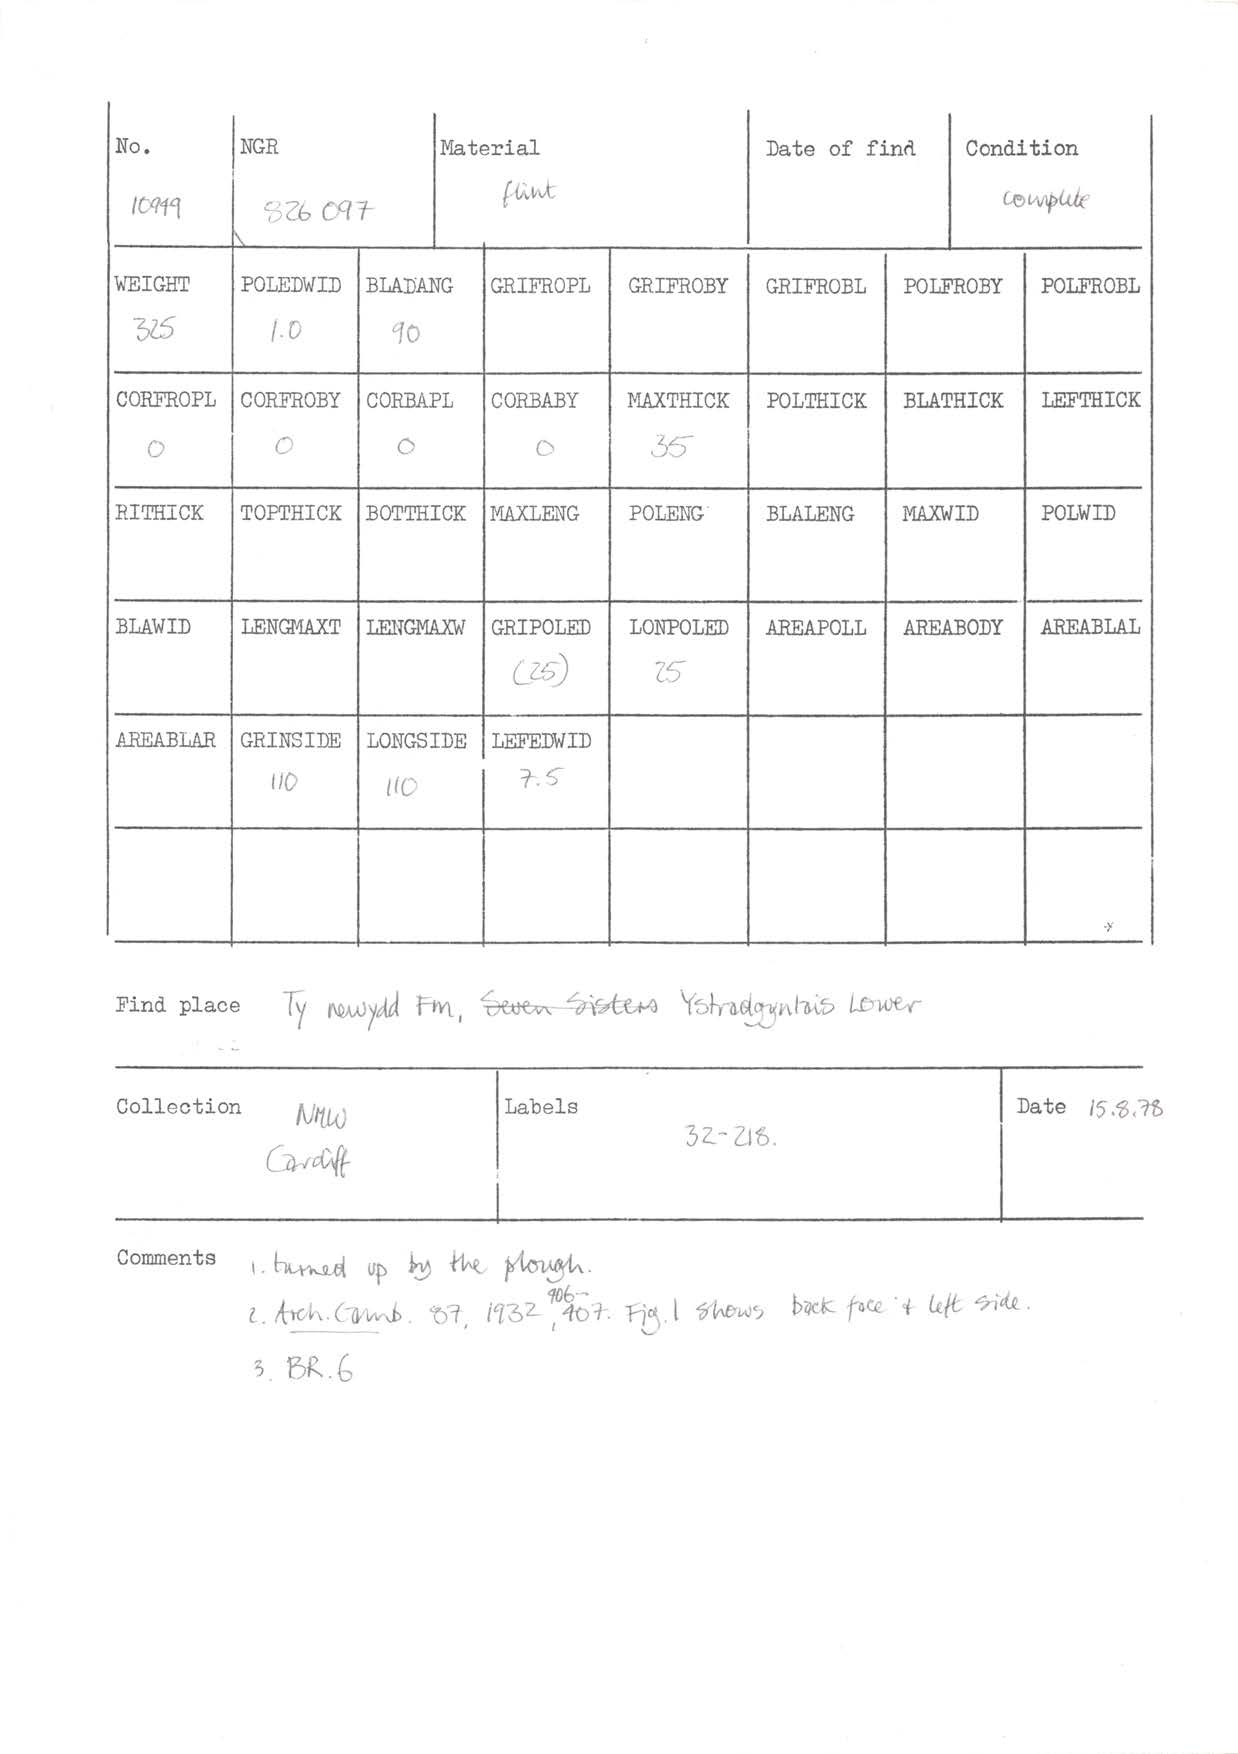 No. NGR Material Date of find Condition
10949 826 097 flint complete
WEIGHT POLEDWID BLADANG GRIFROPL GRIFROBY GRIFROBL POLFROBY POLFROBL
325 1.0 90
CORFROPL CORFROBY CORBAPL CORBABY MAXTHICK POLTHICK BLATHICK LEFTHICK
0 0 0 0 35
RITHICK TOPTHICK BOTTHICK MAXLENG POLENG BLALENG MAXWID POLWID
BLAWID LENGMAXT LENGMAXW GRIPOLED LONPOLED AREAPOLL AREABODY AREABLAL
(25) 25
AREABLAR GRINSIDE LONGSIDE LEFEDWID
110 110 7.5
Find place Ty newydd Fm, Seven Sisters Ystradgynlais Lower
Collection NMW Labels Date 15.8.78
32-218.
Cardiff
Comments 1. turned up by the plough.
2. Arch. Camb. 87, 1932, 406-407. Fig. 1 shows back face & left side.
3. BR. 6